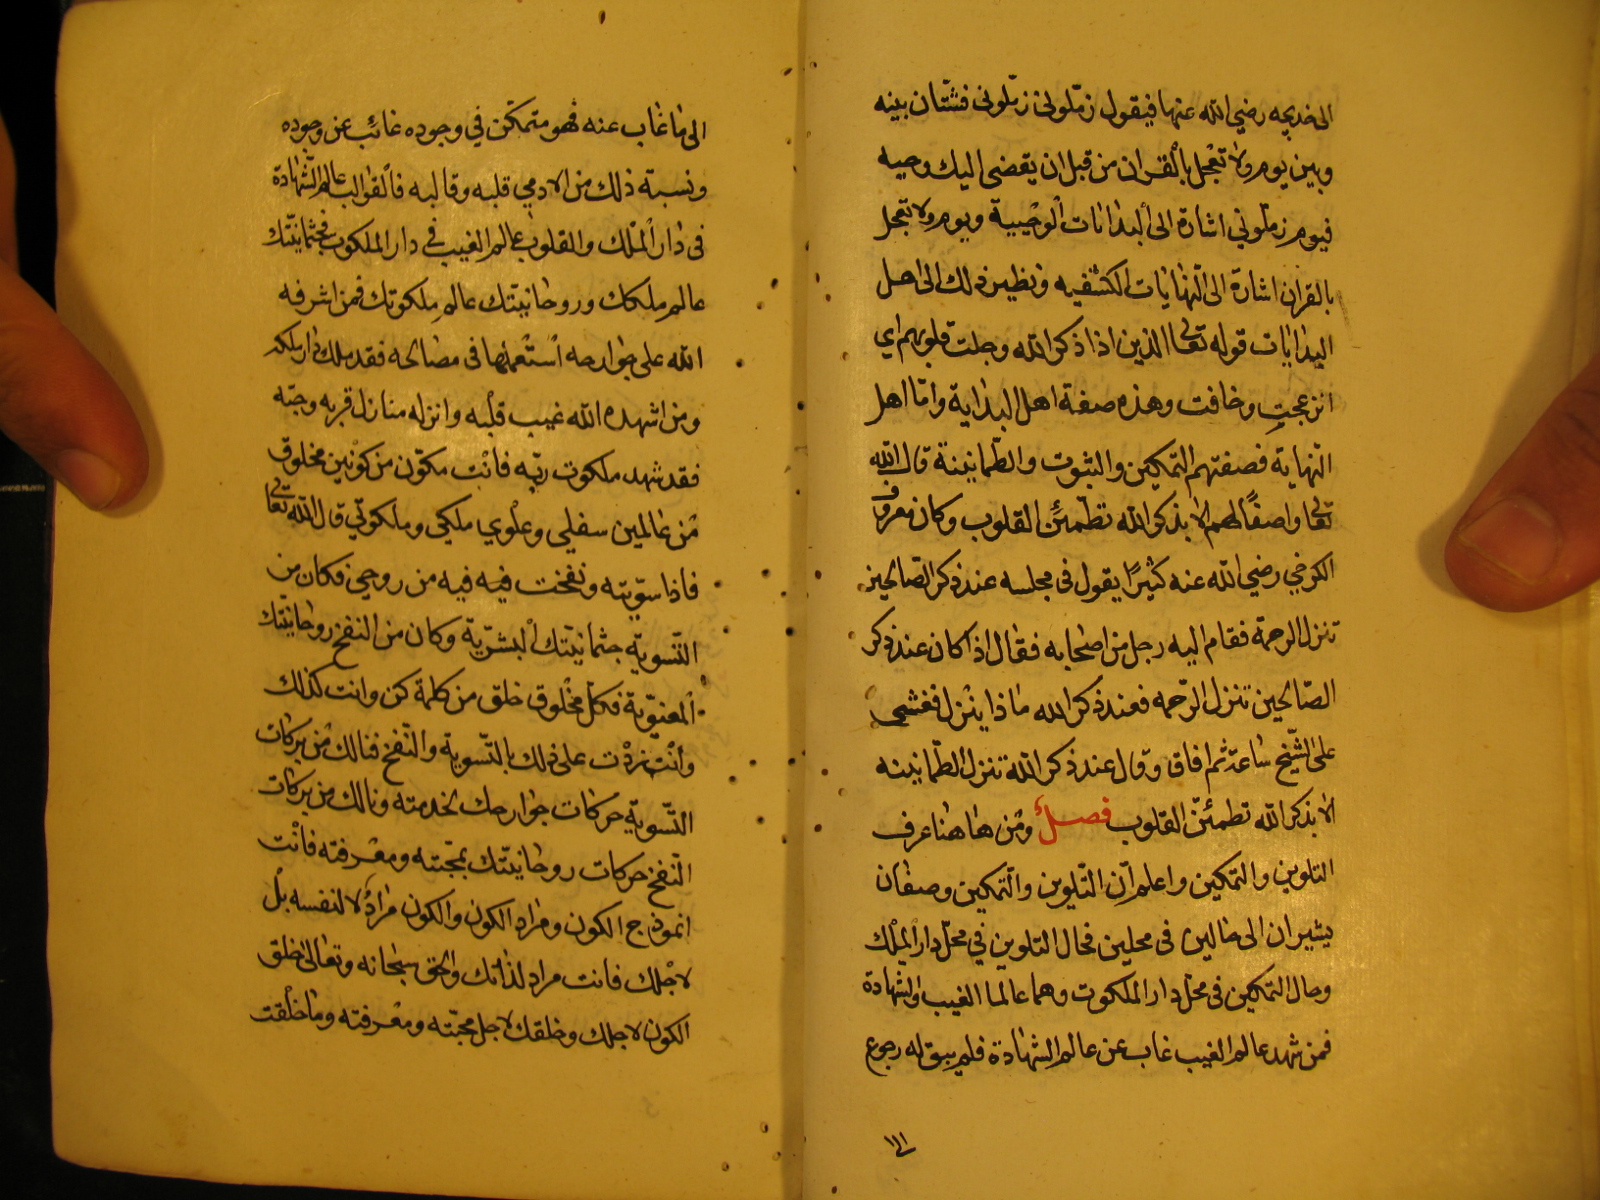 الى خديجه رضي الله عنها فيقول زمّلونى زمّلونى فشتّان بينه
وبين يوم ولا تعجل بالقران من قبل ان يقضى اليك وحيه
فيوم زمّلوني اشارة الى البدايات الوحيية ويوم ولا تعجل
بالقران اشارة الى النّهايات الكشفيه ونظير ذلك الى اهل
البدايات قوله تعالى الذين اذا ذكر الله وجلت قلوبهم اي
انزعجت وخافت وهذه صفة اهل البداية وامّا اهل
النّهاية فصفتهم التمكين والثبوت والطّمانينة قال الله
تعالى واصفًا لهم الا بذكر الله تطمئنّ القلوب وكان معروف
الكرخي رضي الله عنه كثيرًا يقول فى مجلسه عند ذكر الصّالحين
تنزل الرحمة فقام اليه رجل من اصحابه فقال اذا كان عند ذكر
الصّالحين تنزل الرّحمه فعند ذكر الله ماذا ينزل فغشي
على الشّيخ ساعة ثم افاق وقال عند ذكر الله تنزل الطّمانينه
الا بذكر الله تطمئنّ القلوب فصل ومن هاهنا عرف
التلوين والتمكين واعلم انّ التّلوين والتّمكين وصفان
يشيران الى حالين فى محلين فحال التلوين في محلّ دار الملك
وحال التمكين فى محلّ دار الملكوت وهما عالما الغيب والشّهادة
فمن شهد عالم الغيب غاب عن عالم الشّهادة فلم يبق له رجوع
الى ما غاب عنه فهو متمكّن في وجوده غائب عن وجوده
ونسبة ذلك من الادمي قلبه وقالبه فالقوالب عالم الشّهادة
فى دار الملك والقلوب عالم الغيب فى دار الملكوت فجثمانيّتك
عالم ملكك وروحانيّتك عالم ملكوتك فمن اشرفه
الله على جوارحه استعملها فى مصالحه فقد ملك دار ملكه
ومن اشهده الله غيب قلبه وانزله منازل قربه وحبّه
فقد شهد ملكوت ربّه فانت مكوّن من كونين مخلوق
من عالمين سفلي وعلوي ملكي وملكوتي قال الله تعالى
فاذا سوّيته ونفخت فيه فيه من روحي فكان من
التّسوية جثمانيّتك البشريّة وكان من النفخ روحانيّتك
المعنويّة فكل مخلوق خلق من كلمة كن وانت كذلك
وانت زدت على ذلك بالتّسوية والنّفخ فنالك من بركات
التّسوية حركات جوارحك بخدمته ونالك من بركات
النّفخ حركات روحانيّتك بمحبّته ومعرفته فانت
انموذج الكون ومراد الكون والكون مرادٌ لا لنفسه بل
لاجلك فانت مراد لذاتك والحق سبحانه وتعالى خلق
الكون لاجلك وخلقك لاجل محبّته ومعرفته وما خلقت